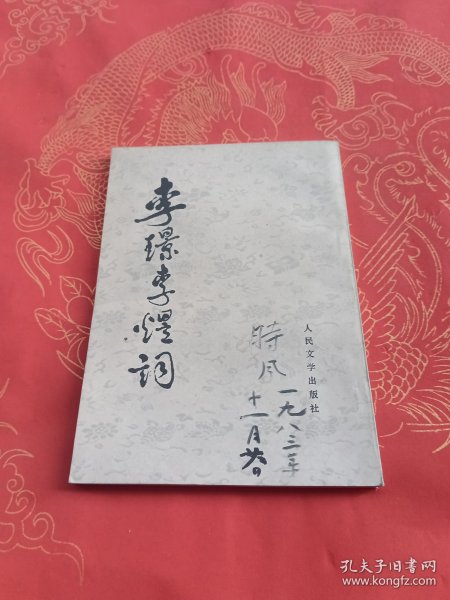 李璟李煜词
人民文学出版社
時风
一九八三年
十一月廿六日
孔夫子旧书网
www.kongfz.com